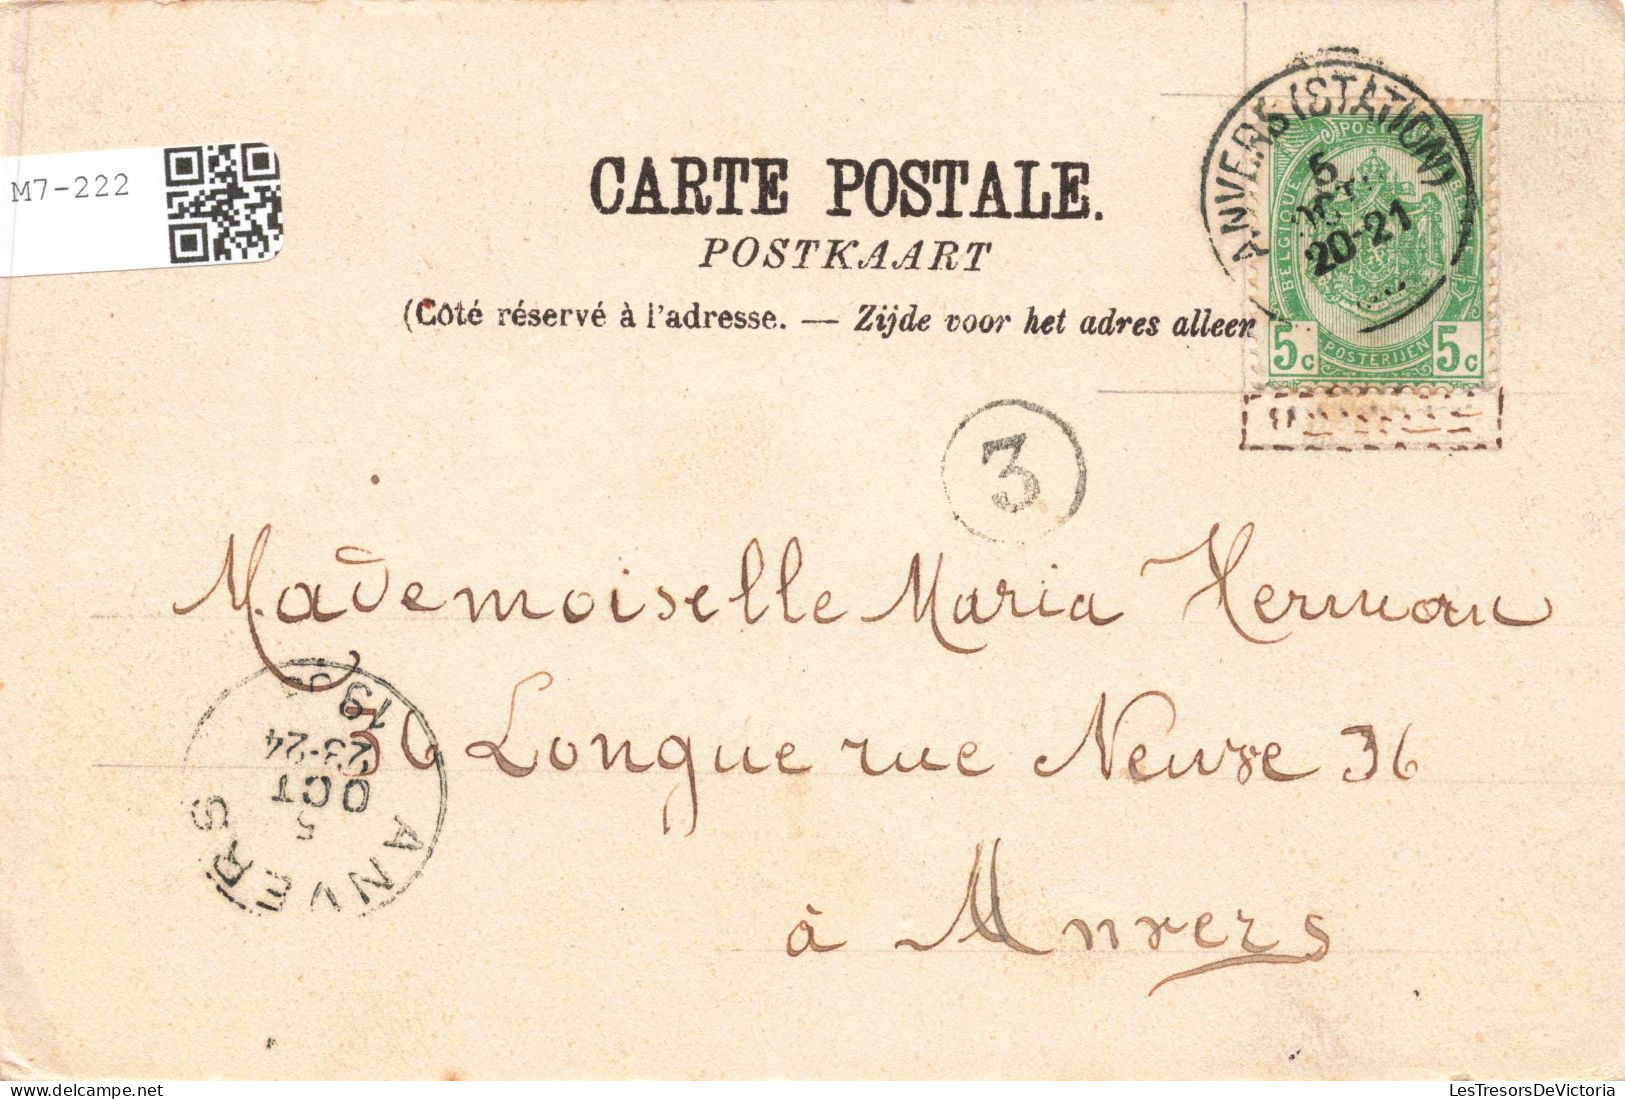 M7-222
CARTE POSTALE.
POSTKAART
(Côté réservé à l'adresse. — Zijde voor het adres alleen
ANVERS (STATION)
5
OCT
20-21
BELGIQUE
POSTERIJEN
5c 5c
3
Mademoiselle Maria Herman
36 Longue rue Neuve 36
à Anvers
ANVERS
5
OCT
23-24
19
LesTresorsDeVictoria